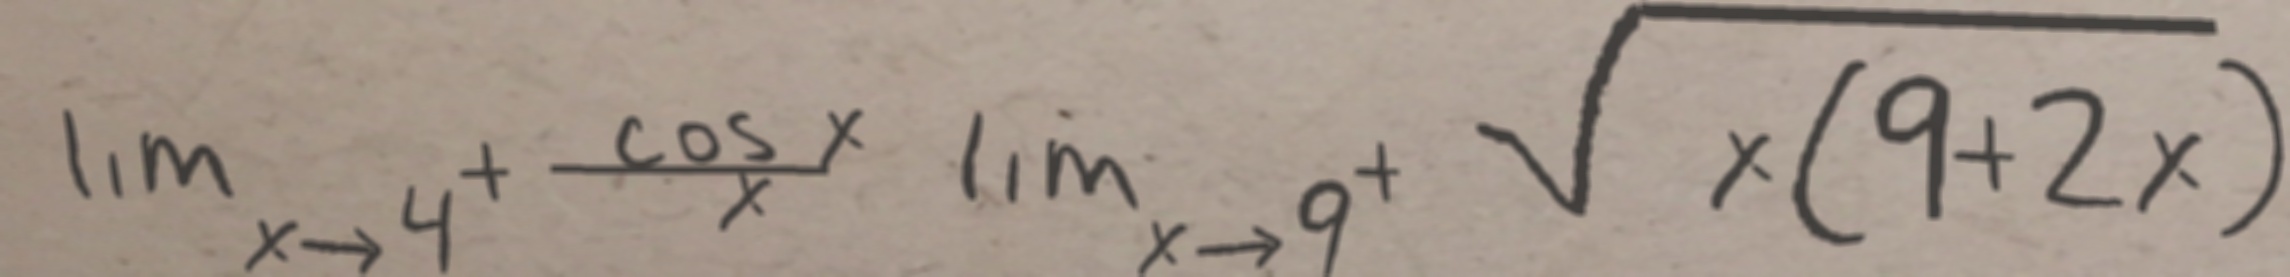 \lim_{x \to 4^+} \frac{\cos x}{x} \lim_{x \to 9^+} \sqrt{x(9+2x)}